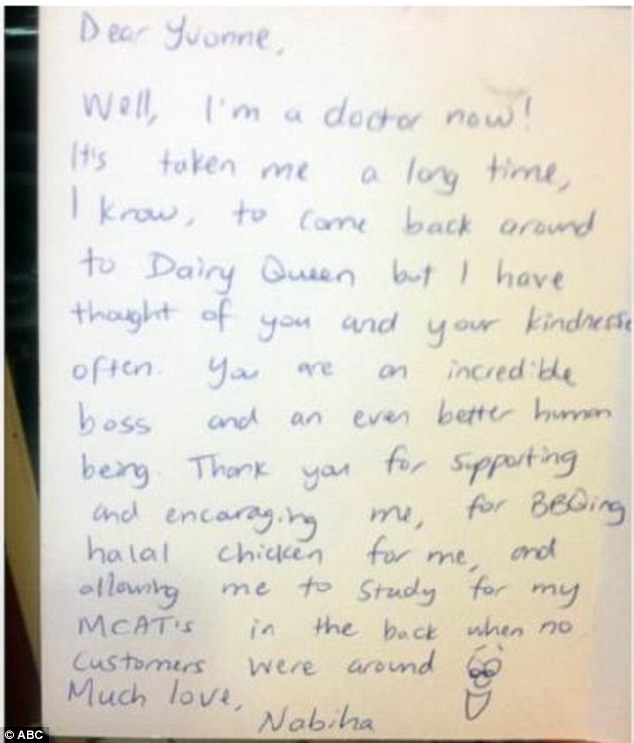 Dear Yvonne,
Well, I'm a doctor now!
It's taken me a long time,
I know, to come back around
to Dairy Queen but I have
thought of you and your kindness
often. You are an incredible
boss and an even better human
being. Thank you for supporting
and encouraging me, for BBQing
halal chicken for me, and
allowing me to study for my
MCAT's in the back when no
customers were around
Much love,
Nabiha
© ABC